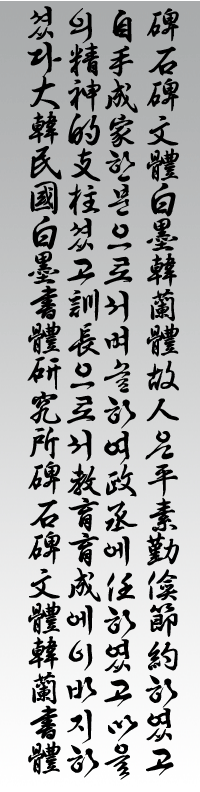 碑石碑文體白墨韓蘭體故人은平素勤儉節約하였고
自手成家한분으로서벼슬하여政丞에任하였고마을
의精神的支柱였고訓長으로서教育育成에이바지하
였다大韓民國白墨書體研究所碑石碑文體韓蘭書體